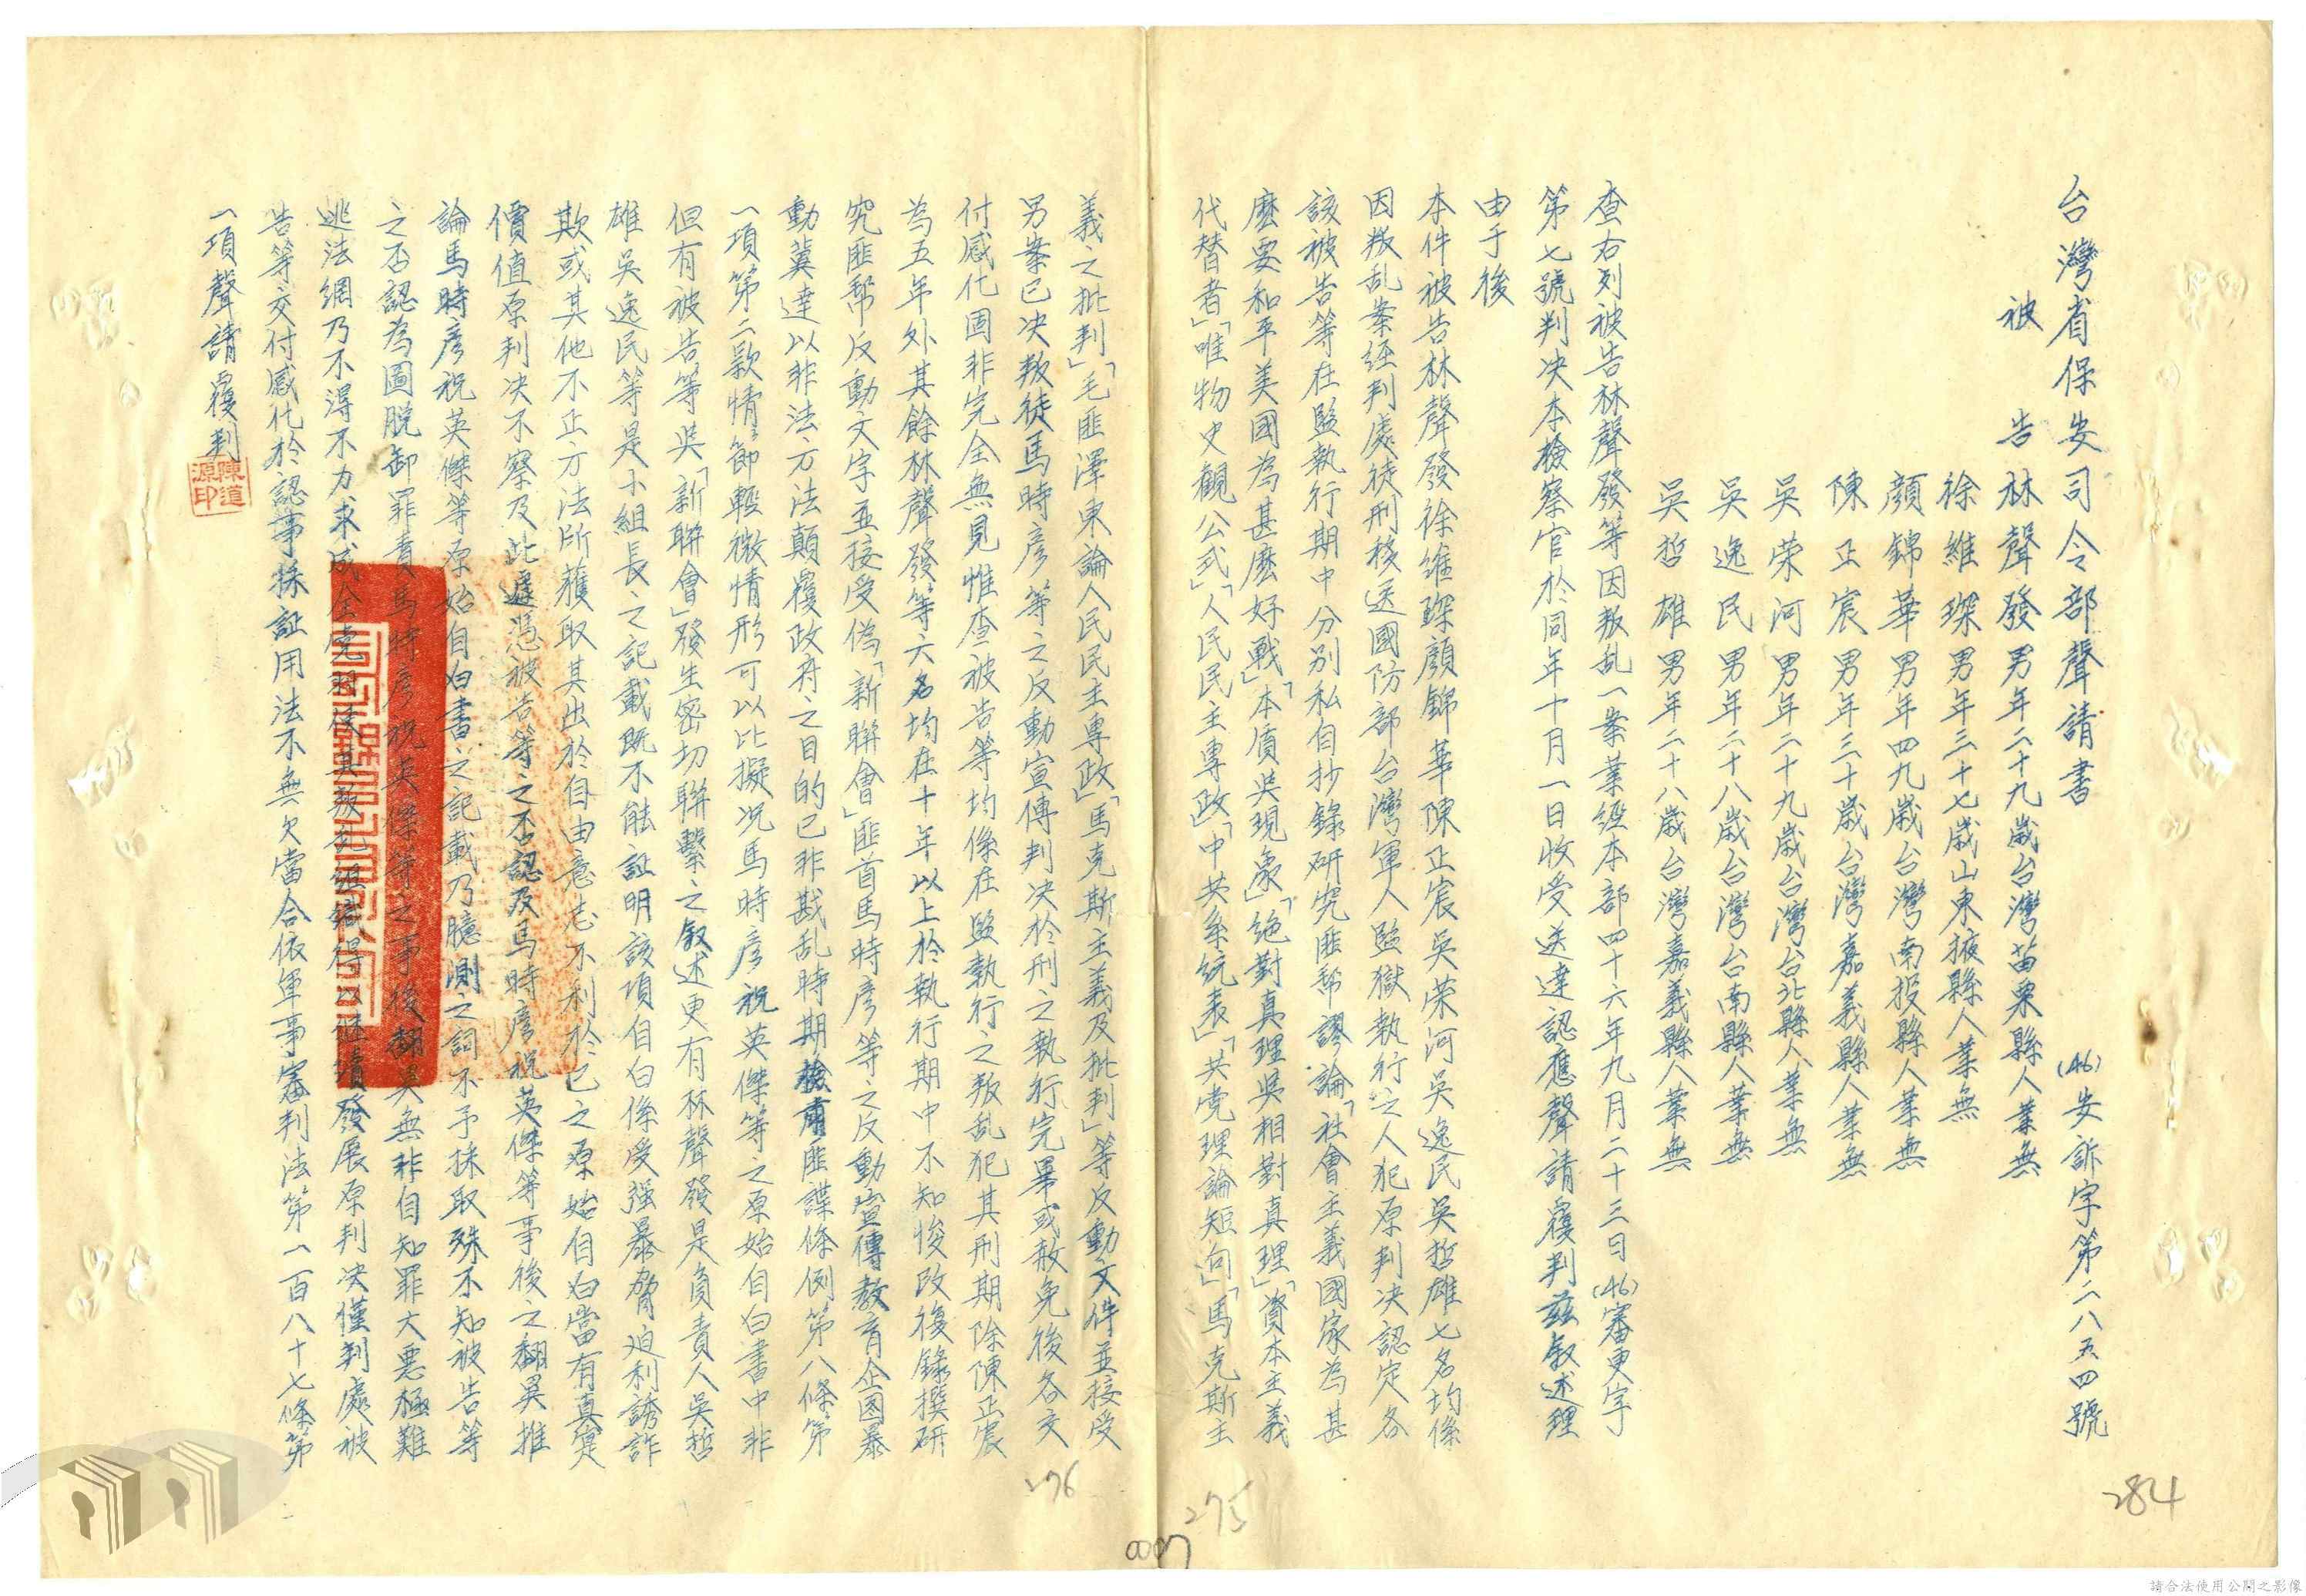 台灣省保安司令部聲請書
(46)安訴字第二八五四號
被告 林聲發 男年二十九歲台灣苗栗縣人業無
徐維琛 男年三十七歲山東掖縣人業無
顏錦華 男年四九歲台灣南投縣人業無
陳正宸 男年三十歲台灣嘉義縣人業無
吳荣河 男年二十九歲台灣台北縣人業無
吳逸民 男年二十八歲台灣台南縣人業無
吳哲雄 男年二十八歲台灣嘉義縣人業無
查右列被告林聲發等因叛乱一案業經本部四十六年九月二十三日(46)審更字
第七號判决本檢察官於同年十月一日收受送達認應聲請覆判茲叙述理
由于後
本件被告林聲發徐維琛顏錦華陳正宸吳荣河吳逸民吳哲雄七名均係
因叛乱案經判處徒刑移送國防部台灣軍人監獄執行之人犯原判决認定各
該被告等在監執行期中分別私自抄錄研究匪幫謬論「社會主義國家為甚
麽要和平美國為甚麽好戰」「本質與現象」「絕對真理與相對真理」「資本主義
代替者」「唯物史觀公式」「人民民主專政」「中共系統表」「共党理論短句」「馬克斯主
義之批判」「毛匪澤東論人民民主專政」「馬克斯主義及批判」等反動文件並接受
另案已决叛徒馬時彥等之反動宣傳判决於刑之執行完畢或赦免後各交
付感化固非完全無見惟查被告等均係在監執行之叛乱犯其刑期除陳正宸
為五年外其餘林聲發等六名均在十年以上於執行期中不知悛改復錄撰研
究匪幫反動文字並接受偽「新聯會」匪首馬時彥等之反動宣傳教育企圖暴
動冀達以非法方法顛覆政府之目的已非戡乱時期檢肅匪諜條例第八條第
一項第二款情節輕微情形可以比擬况馬時彥祝英傑等之原始自白書中非
但有被告等與「新聯會」發生密切聯繫之叙述更有林聲發是負責人吳哲
雄吳逸民等是小組長之記載既不能証明該項自白係受强暴脅迫利誘詐
欺或其他不正方法所獲取其出於自由意志不利於己之原始自白當有真實
價值原判决不察及此遽憑被告等之否認及馬時彥祝英傑等事後之翻異推
論馬時彥祝英傑等原始自白書之記載乃臆測之詞不予採取殊不知被告等
之否認為圖脱卸罪責馬時彥祝英傑等之事後翻異無非自知罪大惡極難
逃法網乃不得不力求成全党羽使其叛乱組織得以继續發展原判决僅判處被
告等交付感化於認事採証用法不無欠當合依軍事審判法第一百八十七條第
一項聲請覆判
陳道源印
284
275
276
0007
請合法使用公開之影像